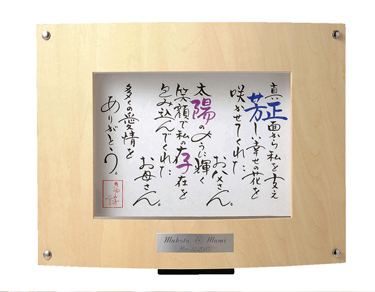 真正面から私を支え
芳しい幸せの花を
咲かせてくれた
お父さん。
太陽のように輝く
笑顔で私の存在を
包み込んでくれた
お母さん。
多くの愛情を
ありがとう。